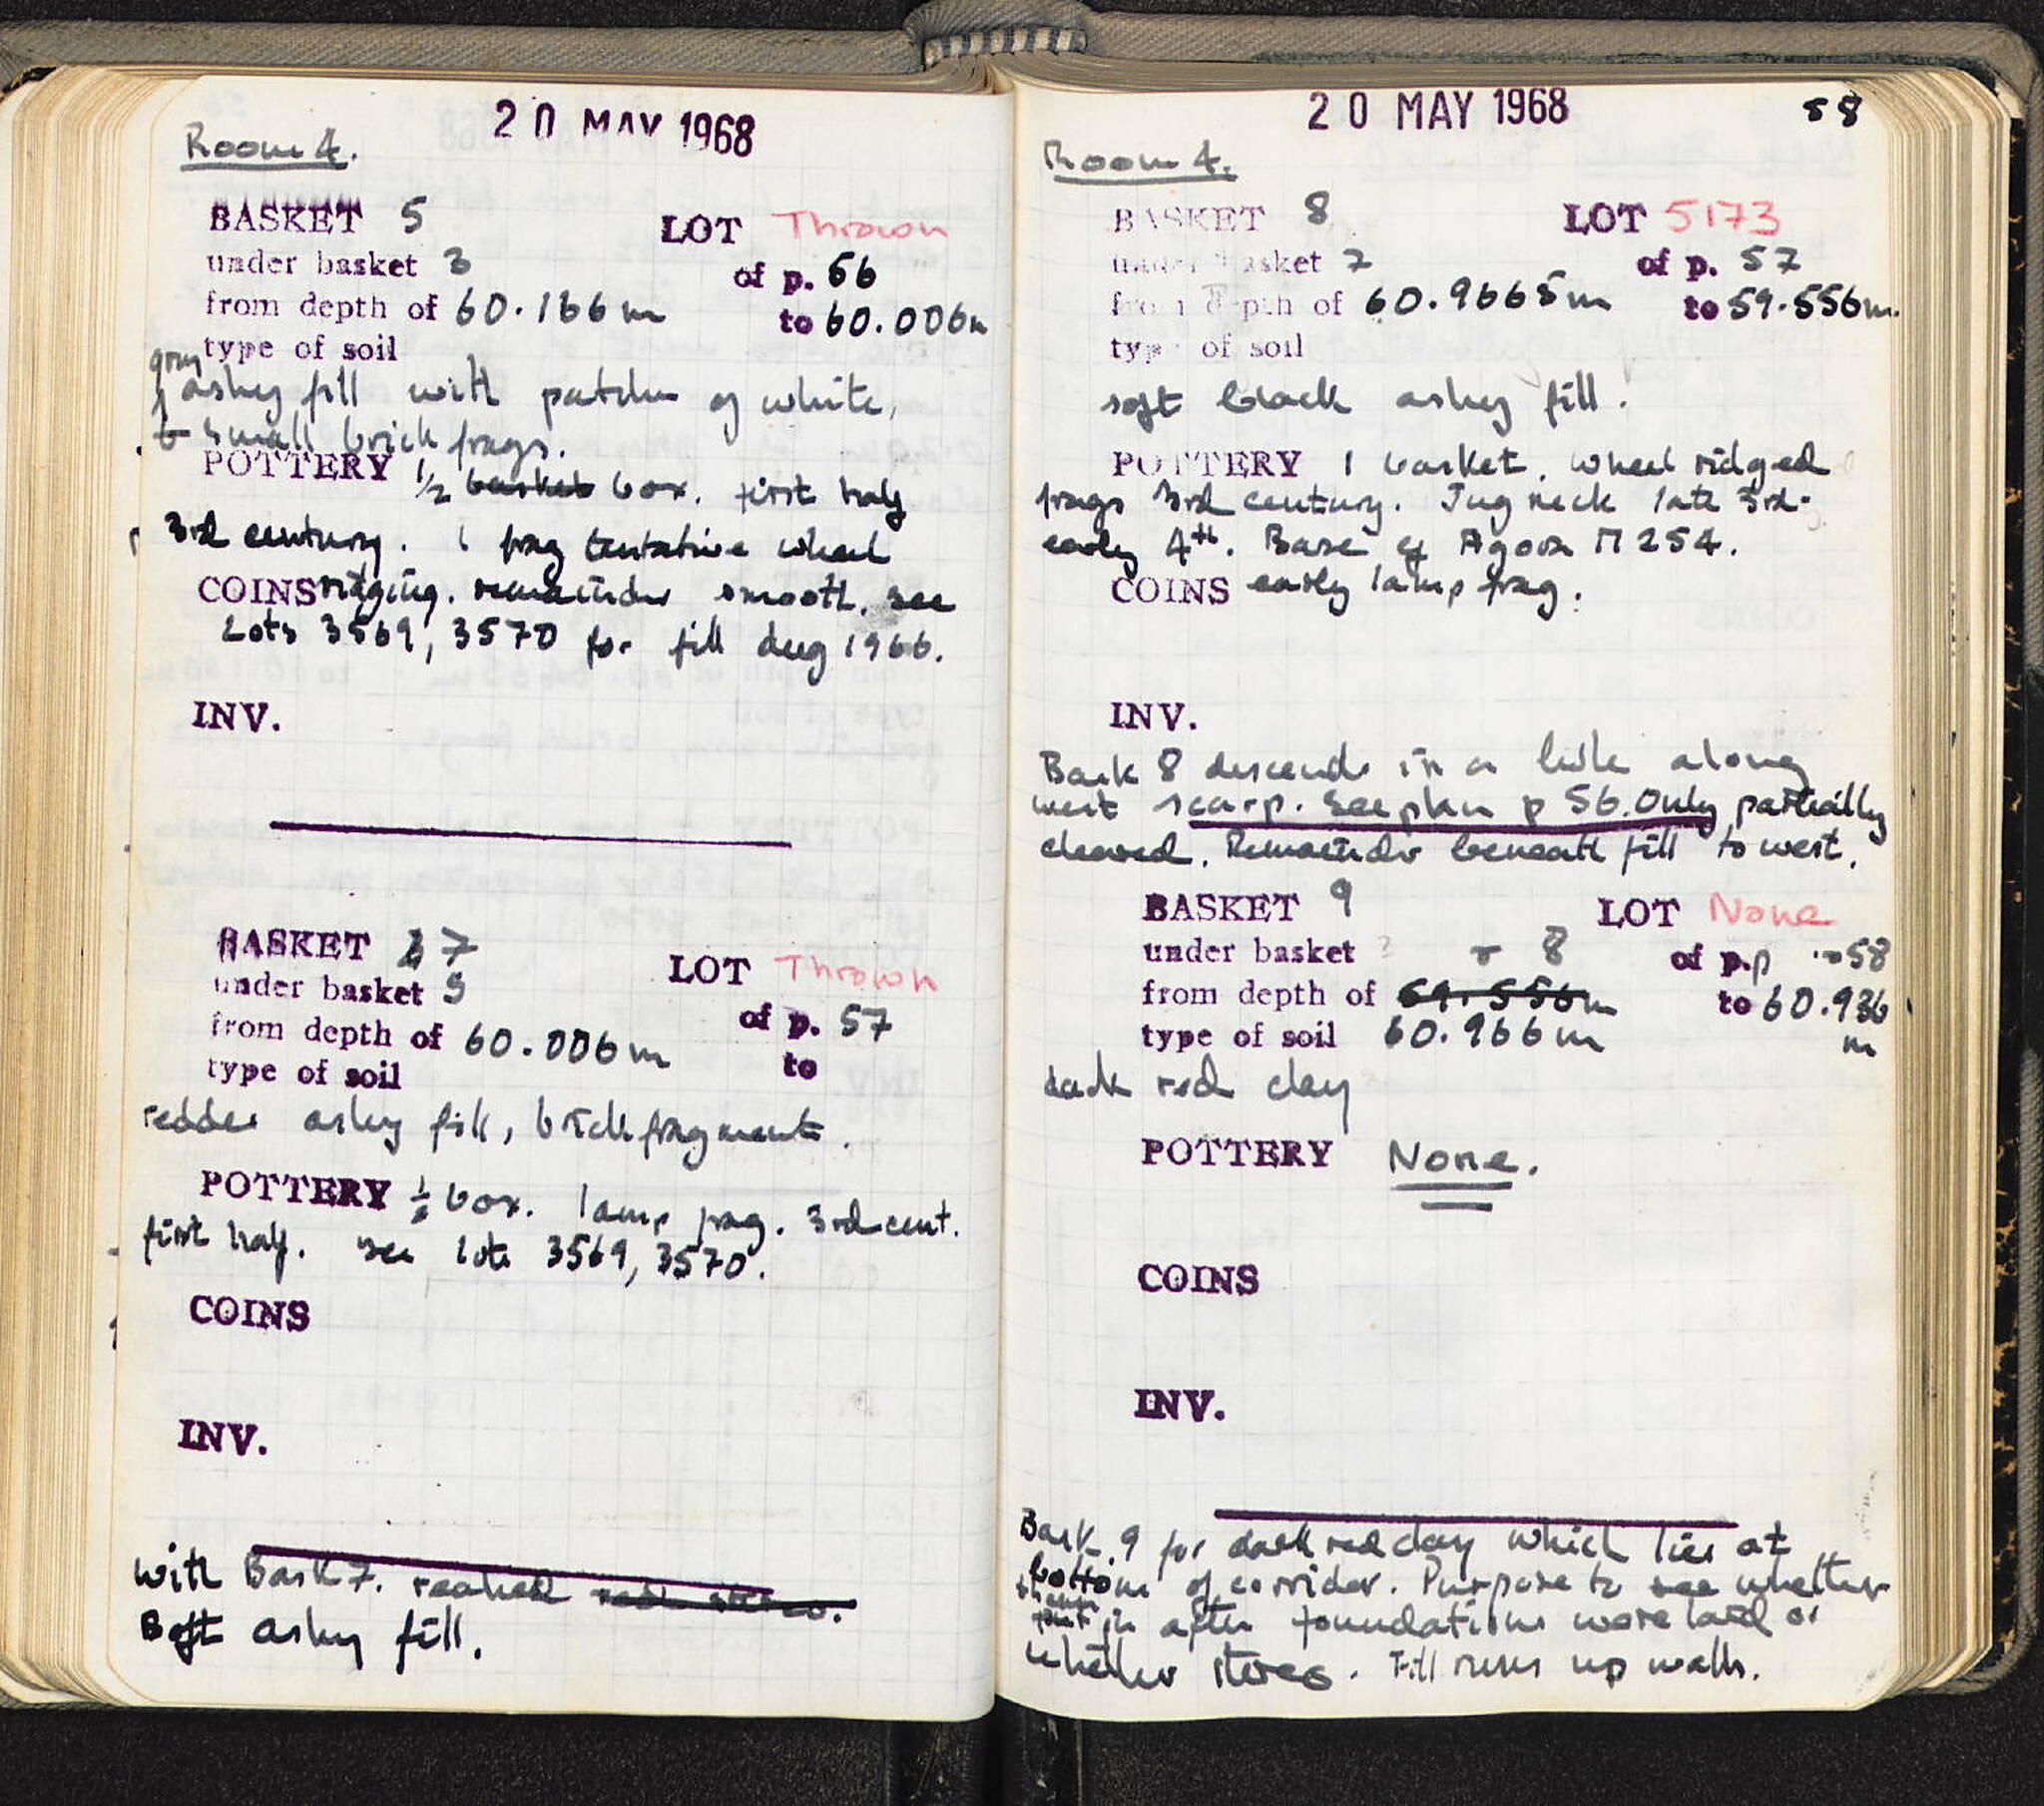 20 MAY 1968
Room 4.
BASKET 5 LOT Thrown
under basket 3 of p. 56
from depth of 60.166 m to 60.006m
type of soil
gray
ashy fill with patches of white,
small brick frags.
POTTERY 1/2 basket box. first half
3rd century. 1 frag tentative wheel
COINS ridging. remainder smooth. see
Lots 3569, 3570 for fill dug 1966.
INV.
BASKET 7 LOT Thrown
under basket 5 of p. 57
from depth of 60.006 m to
type of soil
redder ashy fill, brick fragments.
POTTERY 1/2 box. lamp frag. 3rd cent.
first half. see lots 3569, 3570.
COINS
INV.
with Bask 7. reached
Soft ashy fill.
20 MAY 1968 58
Room 4.
BASKET 8 LOT 5173
under basket 7 of p. 57
from depth of 60.9665m to 59.556m.
type of soil
soft black ashy fill.
POTTERY 1 basket. Wheel ridged
frags 3rd century. Jug neck late 3rd-
early 4th. Base of Agora M 254.
COINS early lamp frag.
INV.
Bask 8 descends in a hole along
west scarp. See plan p 56. Only partially
cleared. Remainder beneath fill to west.
BASKET 9 LOT None
under basket 8 of p. p 58
from depth of 59.556m to 60.936
type of soil 60.966m m
dark red clay
POTTERY None.
COINS
INV.
Bask. 9 for dark red clay which lies at
bottom of corridor. Purpose to see whether
put in after foundations were laid or
whether stereo. Fill runs up walls.